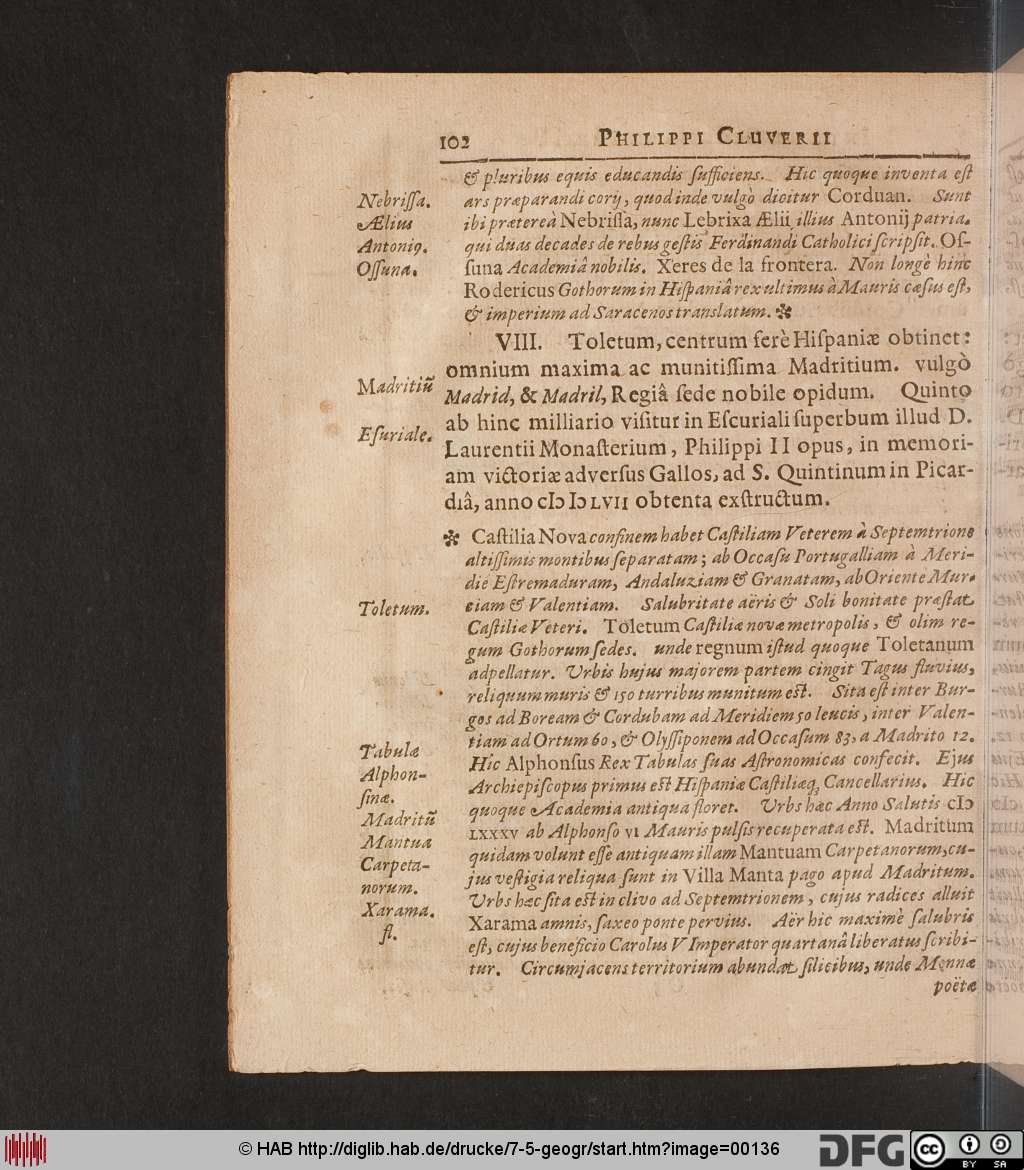 102 PHILIPPI CLUVERII
& pluribus equis educandis ſufficiens. Hic quoque inventa eſt
ars præparandi corij, quod inde vulgò dicitur Corduan. Sunt
ibi prætereà Nebriſſa, nunc Lebrixa Ælii illius Antonij patria.
qui duas decades de rebus geſtis Ferdinandi Catholici ſcripſit. Oſ-
ſuna Academiâ nobilis. Xeres de la frontera. Non longè hinc
Rodericus Gothorum in Hiſpaniâ rex ultimus à Mauris cæſus eſt,
& imperium ad Saracenos translatum. ✼
Nebriſſa.
Ælius
Antoniꝯ.
Oſſuna.
VIII. Toletum, centrum ferè Hiſpaniæ obtinet:
omnium maxima ac munitiſſima Madritium. vulgò
Madrid, & Madril, Regiâ ſede nobile opidum. Quinto
ab hinc milliario viſitur in Eſcuriali ſuperbum illud D.
Laurentii Monaſterium, Philippi II opus, in memori-
am victoriæ adverſus Gallos, ad S. Quintinum in Picar-
diâ, anno cIↄ Iↄ LVII obtenta exſtructum.
Madritiũ
Eſuriale.
✼ Caſtilia Nova confinem habet Caſtiliam Veterem à Septemtrione
altiſſimis montibus ſeparatam; ab Occaſu Portugalliam à Meri-
die Eſtremaduram, Andaluziam & Granatam, ab Oriente Mur-
ciam & Valentiam. Salubritate aëris & Soli bonitate præſtat
Caſtiliæ Veteri. Toletum Caſtiliæ novæ metropolis, & olim re-
gum Gothorum ſedes. unde regnum iſtud quoque Toletanum
adpellatur. Urbis hujus majorem partem cingit Tagus fluvius,
reliquum muris & 150 turribus munitum eſt. Sita eſt inter Bur-
gos ad Boream & Cordubam ad Meridiem 50 leucis, inter Valen-
tiam ad Ortum 60, & Olyſſiponem ad Occaſum 83, a Madrito 12.
Hic Alphonſus Rex Tabulas ſuas Aſtronomicas confecit. Ejus
Archiepiſcopus primus eſt Hiſpaniæ Caſtiliæq; Cancellarius. Hic
quoque Academia antiqua floret. Urbs hæc Anno Salutis cIↄ
LXXXV ab Alphonſo VI Mauris pulſis recuperata eſt. Madritum
quidam volunt eſſe antiquam illam Mantuam Carpetanorum, cu-
jus veſtigia reliqua ſunt in Villa Manta pago apud Madritum.
Urbs hæc ſita eſt in clivo ad Septemtrionem, cujus radices alluit
Xarama amnis, ſaxeo ponte pervius. Aër hic maximè ſalubris
eſt, cujus beneficio Carolus V Imperator quartanâ liberatus ſcribi-
tur. Circumjacens territorium abundat ſilicibus, unde Mennæ
poëtæ
Toletum.
Tabulæ
Alphon-
ſinæ.
Madritũ
Mantua
Carpeta-
norum.
Xarama.
fl.
© HAB http://diglib.hab.de/drucke/7-5-geogr/start.htm?image=00136
DFG
cc BY SA